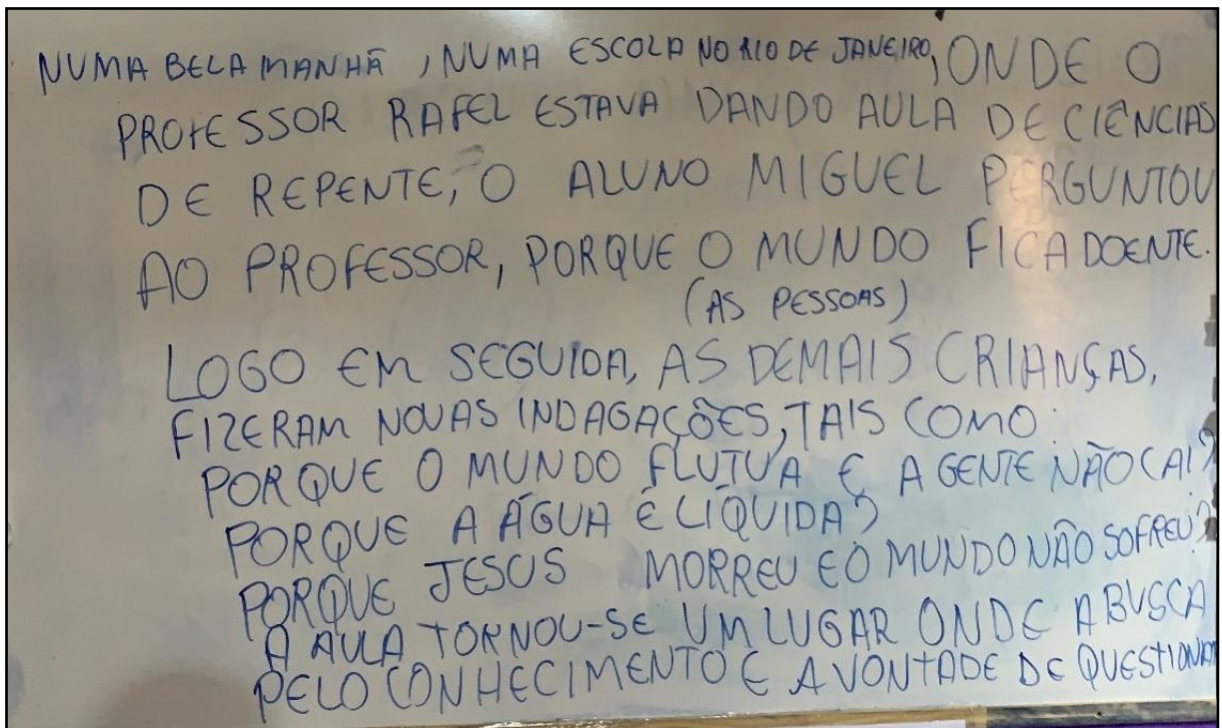 NUMA BELA MANHÃ, NUMA ESCOLA NO RIO DE JANEIRO, ONDE O
PROFESSOR RAFEL ESTAVA DANDO AULA DE CIÊNCIAS
DE REPENTE, O ALUNO MIGUEL PERGUNTOU
AO PROFESSOR, PORQUE O MUNDO FICA DOENTE.
(AS PESSOAS)
LOGO EM SEGUIDA, AS DEMAIS CRIANÇAS,
FIZERAM NOVAS INDAGAÇÕES, TAIS COMO:
PORQUE O MUNDO FLUTUA E A GENTE NÃO CAI?
PORQUE A ÁGUA É LÍQUIDA?
PORQUE JESUS MORREU E O MUNDO NÃO SOFREU?
A AULA TORNOU-SE UM LUGAR ONDE A BUSCA
PELO CONHECIMENTO E A VONTADE DE QUESTIONAR